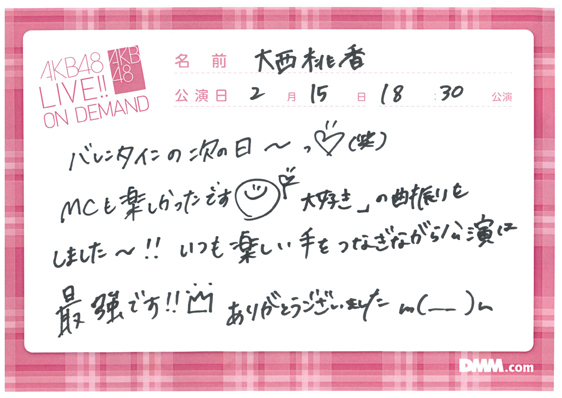 AKB48
LIVE!!
ON DEMAND
AKB
48
名前 大西桃香
公演日 2月15日 18:30 公演
バレンタインの次の日〜っ♡(笑)
MCも楽しかったです 大好き」の曲振りを
しました〜!! いつも楽しい手をつなぎながら公演は
最強です!! ありがとうございました m(__)m
DMM.com